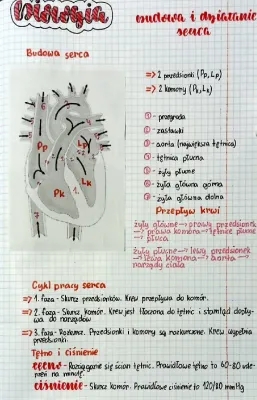 Biologia
budowa i działanie
serca
Budowa serca
=> 2 przedsionki (Pp, Lp)
=> 2 komory (Pk, Lk)
Pp
Lp
Pk
Lk
① - przegroda
② - zastawki
③ - aorta (największa tętnica)
④ - tętnica płucna
⑤ - żyły płucne
⑥ - żyła główna górna
⑦ - żyła główna dolna
Przepływ krwi
żyły główne -> prawy przedsionek
-> prawa komora -> tętnice płucne
-> płuca
żyły płucne -> lewy przedsionek
-> lewa komora -> aorta ->
narządy ciała
Cykl pracy serca
=> 1. faza - Skurcz przedsionków. Krew przepływa do komór.
=> 2. faza - Skurcz komór. Krew jest tłoczona do tętnic i stamtąd dopły-
wa do narządów
=> 3. faza - Rozkurcz. Przedsionki i komory są rozkurczone. Krew wypełnia
przedsionki.
Tętno i ciśnienie
tętno - Rozciąganie się ścian tętnic. Prawidłowe tętno to 60-80 ude-
rzeń na minutę.
ciśnienie - Skurcz komór. Prawidłowe ciśnienie to 120/80 mmHg